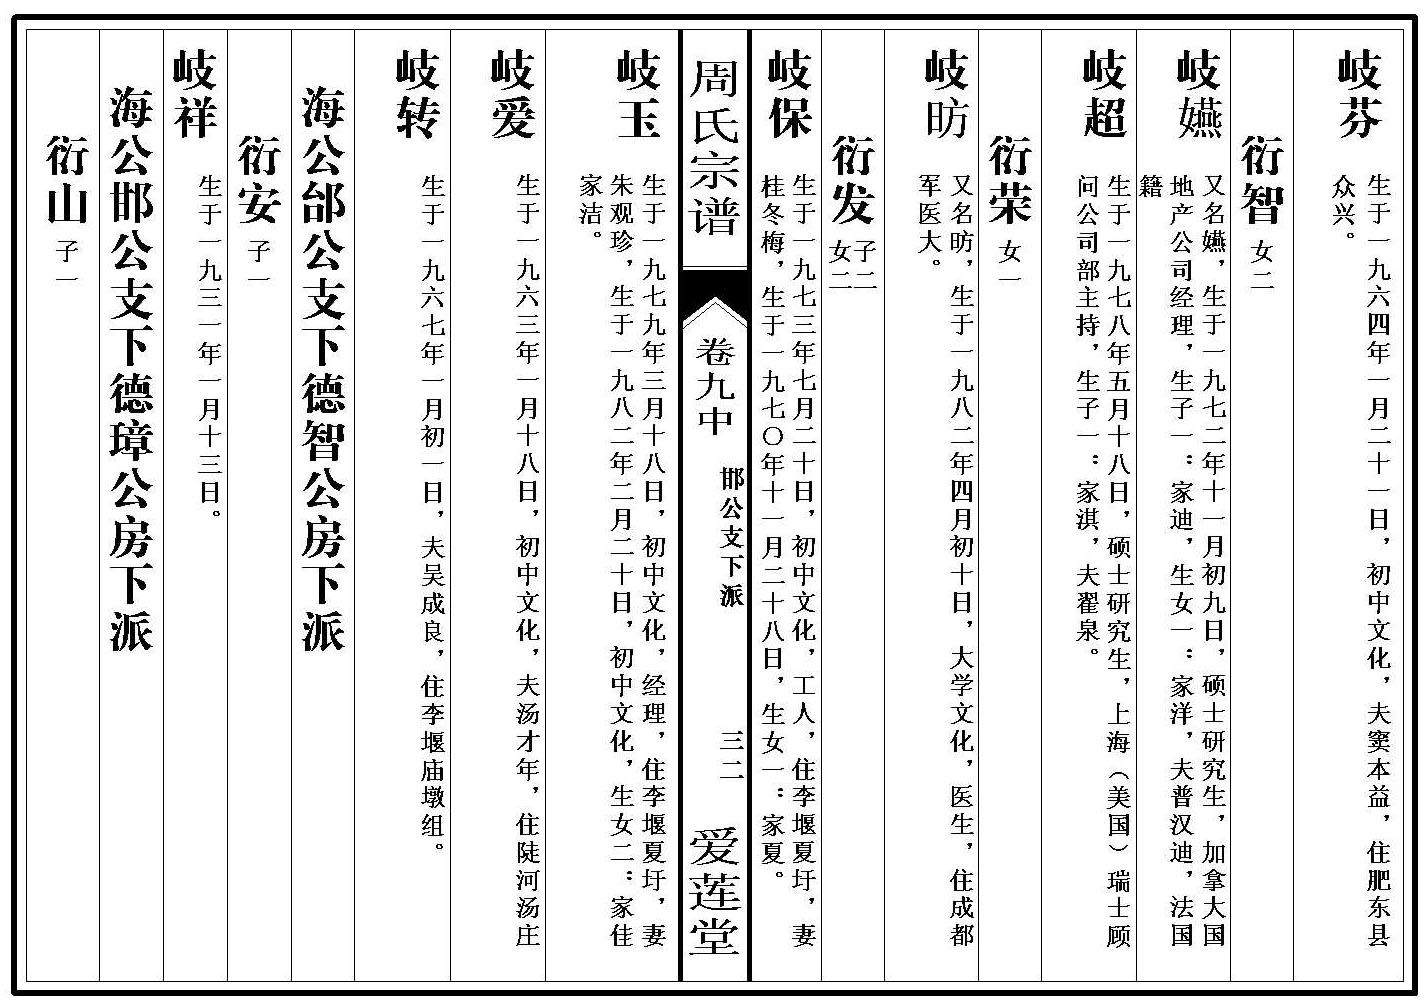 岐芬
生于一九六四年一月二十一日，初中文化，夫窦本益，住肥东县
众兴。
衍智
女二
岐嬿
又名嬿，生于一九七二年十一月初九日，硕士研究生，加拿大国
地产公司经理，生子一：家迪，生女一：家洋，夫普汉迪，法国
籍
岐超
生于一九七八年五月十八日，硕士研究生，上海（美国）瑞士顾
问公司部主持，生子一：家淇，夫翟泉。
衍荣
女一
岐昉
又名昉，生于一九八二年四月初十日，大学文化，医生，住成都
军医大。
衍发
子二
女二
岐保
生于一九七三年七月二十日，初中文化，工人，住李堰夏圩，妻
桂冬梅，生于一九七〇年十一月二十八日，生女一：家夏。
周氏宗谱
卷九中
邯公支下派
三二
爱莲堂
岐玉
生于一九七九年三月十八日，初中文化，经理，住李堰夏圩，妻
朱观珍，生于一九八二年二月二十日，初中文化，生女二：家佳
家洁。
岐爱
生于一九六三年一月十八日，初中文化，夫汤才年，住陡河汤庄
岐转
生于一九六七年一月初一日，夫吴成良，住李堰庙墩组。
海公郃公支下德智公房下派
衍安
子一
岐祥
生于一九三一年一月十三日。
海公邯公支下德璋公房下派
衍山
子一